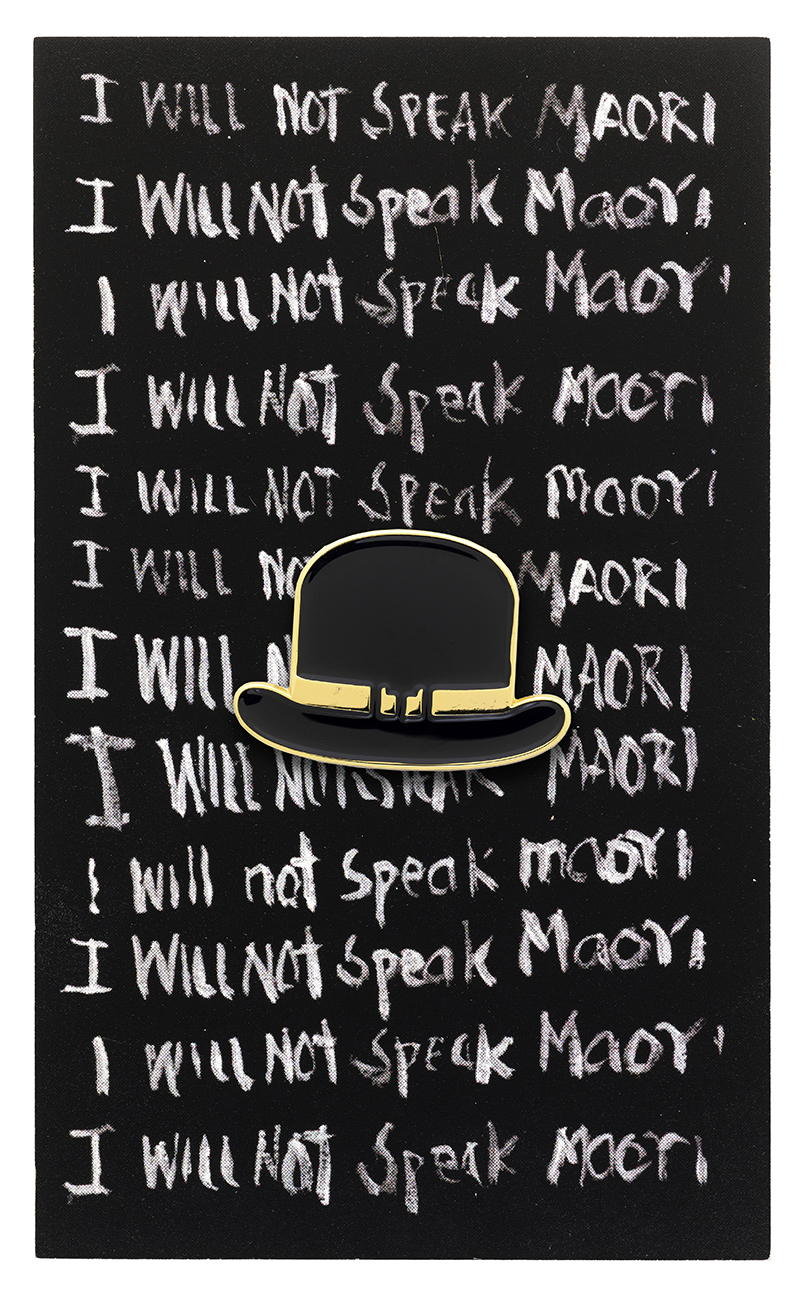 I WILL NOT SPEAK MAORI
I WILL NOt Speak Maori
I WILL NOt Speak Maori
I WILL NOT Speak Maori
I WILL NOT Speak Maori
I WILL MAORI
I WILL MAORI
I WILL NOT SPEAK MAORI
I will not Speak maori
I WILL NOt Speak Maori
I WILL NOt Speak Maori
I WILL NOT Speak Maori